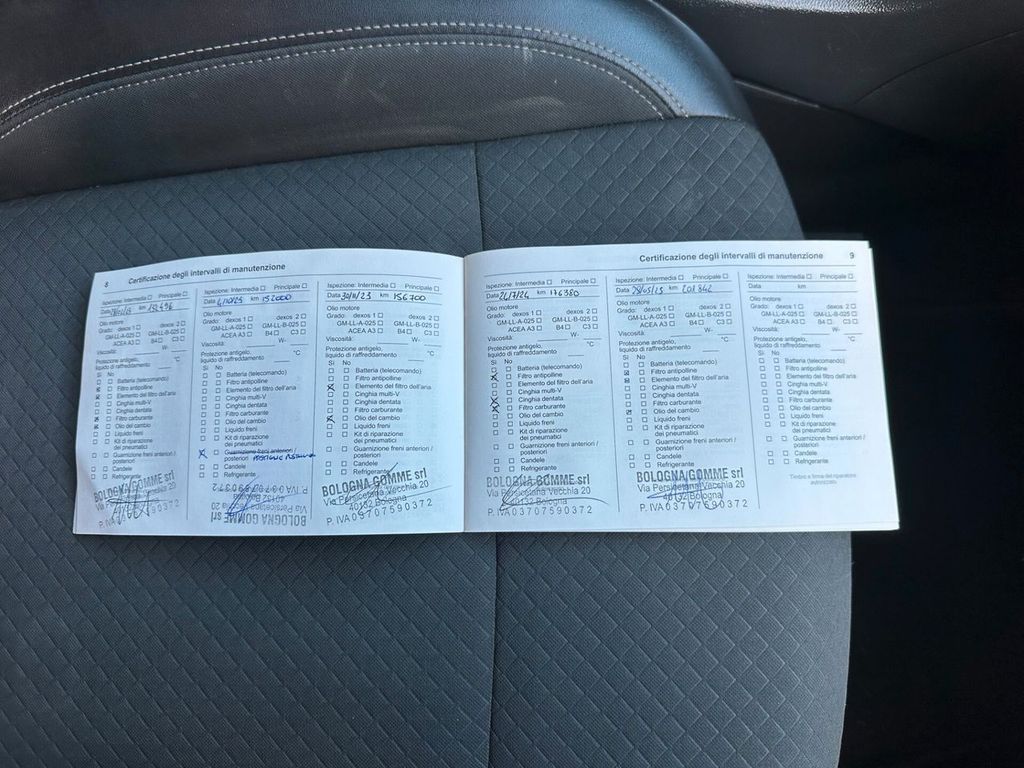 8 Certificazione degli intervalli di manutenzione
Ispezione: Intermedia Principale
Data km
Olio motore
Grado: dexos 1 dexos 2
GM-LL-A-025 GM-LL-B-025
ACEA A3 B4 C3
Viscosità: W-
Protezione antigelo, °C
liquido di raffreddamento
Sì No
Batteria (telecomando)
Filtro antipolline
Elemento del filtro dell'aria
Cinghia multi-V
Cinghia dentata
Filtro carburante
Olio del cambio
Liquido freni
Kit di riparazione
dei pneumatici
Guarnizione freni anteriori /
posteriori
Candele
Refrigerante
BOLOGNA GOMME srl
P. IVA 03707590372
Ispezione: Intermedia Principale
Data 4/10/23 km 152000
Olio motore
Grado: dexos 1 dexos 2
GM-LL-A-025 GM-LL-B-025
ACEA A3 B4 C3
Viscosità: W-
Protezione antigelo, °C
liquido di raffreddamento
Sì No
Batteria (telecomando)
Filtro antipolline
Elemento del filtro dell'aria
Cinghia multi-V
Cinghia dentata
Filtro carburante
Olio del cambio
Liquido freni
Kit di riparazione
dei pneumatici
Guarnizione freni anteriori /
posteriori
Candele
Refrigerante
BOLOGNA GOMME srl
Via Persicetana Vecchia 20
40132 Bologna
P. IVA 03707590372
Ispezione: Intermedia Principale
Data 30/11/23 km 156700
Olio motore
Grado: dexos 1 dexos 2
GM-LL-A-025 GM-LL-B-025
ACEA A3 B4 C3
Viscosità: W-
Protezione antigelo, °C
liquido di raffreddamento
Sì No
Batteria (telecomando)
Filtro antipolline
Elemento del filtro dell'aria
Cinghia multi-V
Cinghia dentata
Filtro carburante
Olio del cambio
Liquido freni
Kit di riparazione
dei pneumatici
Guarnizione freni anteriori /
posteriori
Candele
Refrigerante
BOLOGNA GOMME srl
Via Persicetana Vecchia 20
40132 Bologna
P. IVA 03707590372
Certificazione degli intervalli di manutenzione 9
Ispezione: Intermedia Principale
Data 24/7/24 km 176380
Olio motore
Grado: dexos 1 dexos 2
GM-LL-A-025 GM-LL-B-025
ACEA A3 B4 C3
Viscosità: W-
Protezione antigelo, °C
liquido di raffreddamento
Sì No
Batteria (telecomando)
Filtro antipolline
Elemento del filtro dell'aria
Cinghia multi-V
Cinghia dentata
Filtro carburante
Olio del cambio
Liquido freni
Kit di riparazione
dei pneumatici
Guarnizione freni anteriori /
posteriori
Candele
Refrigerante
BOLOGNA GOMME srl
Via Persicetana Vecchia 20
40132 Bologna
P. IVA 03707590372
Ispezione: Intermedia Principale
Data km 201842
Olio motore
Grado: dexos 1 dexos 2
GM-LL-A-025 GM-LL-B-025
ACEA A3 B4 C3
Viscosità: W-
Protezione antigelo, °C
liquido di raffreddamento
Sì No
Batteria (telecomando)
Filtro antipolline
Elemento del filtro dell'aria
Cinghia multi-V
Cinghia dentata
Filtro carburante
Olio del cambio
Liquido freni
Kit di riparazione
dei pneumatici
Guarnizione freni anteriori /
posteriori
Candele
Refrigerante
BOLOGNA GOMME srl
Via Persicetana Vecchia 20
40132 Bologna
P. IVA 03707590372
Ispezione: Intermedia Principale
Data km
Olio motore
Grado: dexos 1 dexos 2
GM-LL-A-025 GM-LL-B-025
ACEA A3 B4 C3
Viscosità: W-
Protezione antigelo, °C
liquido di raffreddamento
Sì No
Batteria (telecomando)
Filtro antipolline
Elemento del filtro dell'aria
Cinghia multi-V
Cinghia dentata
Filtro carburante
Olio del cambio
Liquido freni
Kit di riparazione
dei pneumatici
Guarnizione freni anteriori /
posteriori
Candele
Refrigerante
Timbro e firma del riparatore
autorizzato